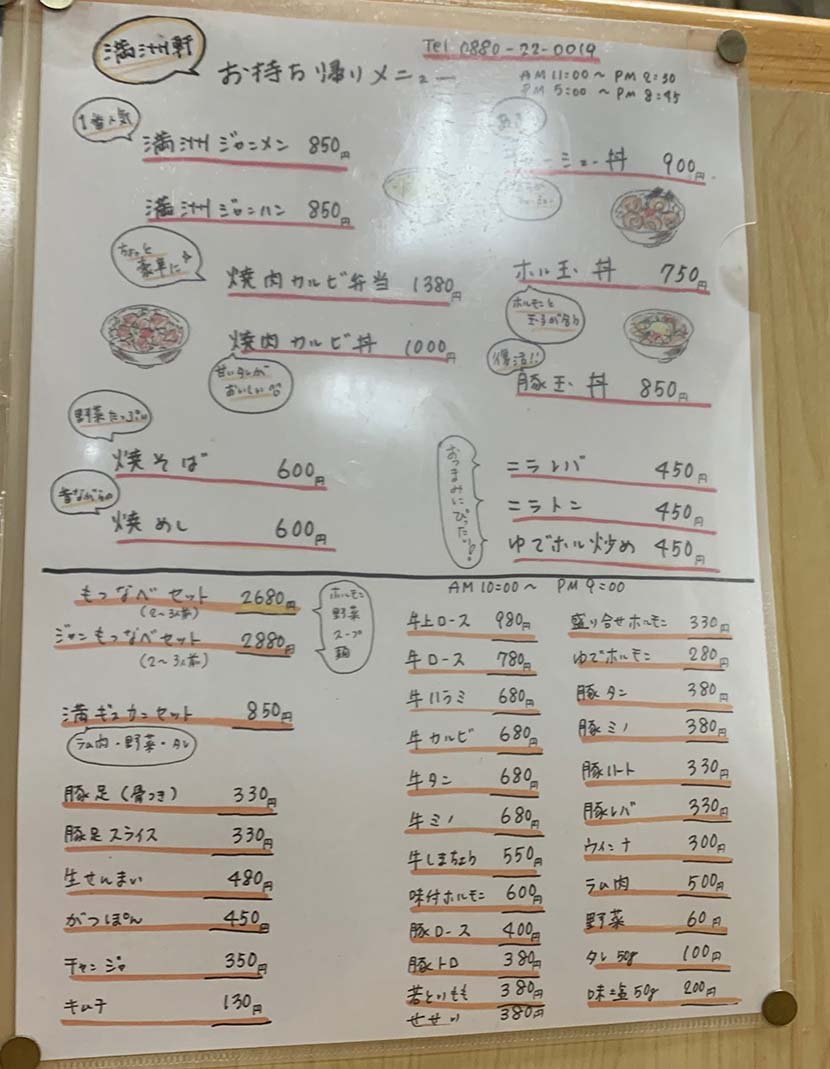 満州軒
お持ち帰りメニュー
Tel 0880-22-0019
AM 11:00 ~ PM 2:30
PM 5:00 ~ PM 8:45
1番人気
満州ジャンメン 850円
満州ジャンハン 850円
ちょっと
豪華に
焼肉カルビ弁当 1380円
焼肉カルビ丼 1000円
甘いタレが
おいしい
野菜たっぷり
焼そば 600円
昔ながらの
焼めし 600円
チャーシュー丼 900円
ホル玉丼 750円
ホルモンと
玉子が合う
復活!!
豚玉丼 850円
おつまみにぴったり!
ニラレバ 450円
ニラトン 450円
ゆでホル炒め 450円
もつなべセット 2680円
(2~3人前)
ジャンもつなべセット 2880円
(2~3人前)
ホルモン
野菜
スープ
麺
満ギスカンセット 850円
ラム肉・野菜・タレ
豚足(骨つき) 330円
豚足スライス 330円
生せんまい 480円
がつぽん 450円
チャンジャ 350円
キムチ 130円
AM 10:00 ~ PM 9:00
牛上ロース 980円
牛ロース 780円
牛ハラミ 680円
牛カルビ 680円
牛タン 680円
牛ミノ 680円
牛しまちょう 550円
味付ホルモン 600円
豚ロース 400円
豚トロ 380円
若とりもも 380円
せせり 380円
盛り合せホルモン 330円
ゆでホルモン 280円
豚タン 380円
豚ミノ 380円
豚ハート 330円
豚レバ 330円
ウインナ 300円
ラム肉 500円
野菜 60円
タレ 50g 100円
味塩 50g 200円